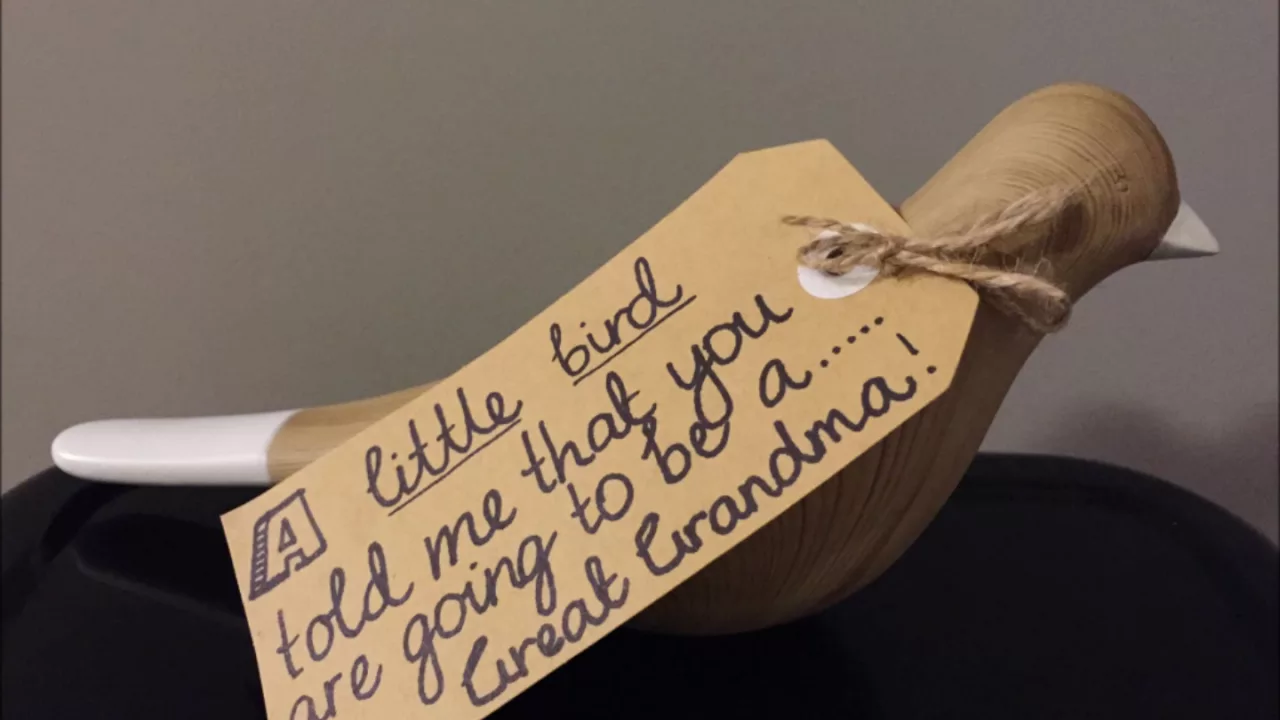 A little bird
told me that you
are going to be a......
Great Grandma!